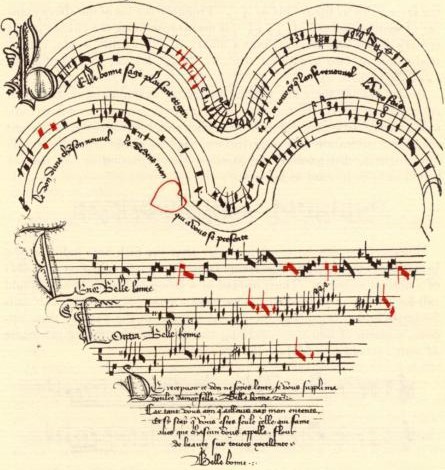 Belle bonne sage plaisant et gen
te A ce iour cy que lan se renouvel
le vous fais
le don dune chanson nouvel
le dedens mon
qui a vous se presente
Belle bonne
Belle bonne
De recevoir ce don ne soyes lente Je vous suppli ma
doulce damoiselle Belle bonne
Car tant vous aim qu aillours nay mon entente
Et sy scay que vous estes seule celle qui fame
aves que chascun vous appelle flour
de beaute sur toutes excellente
Belle bonne